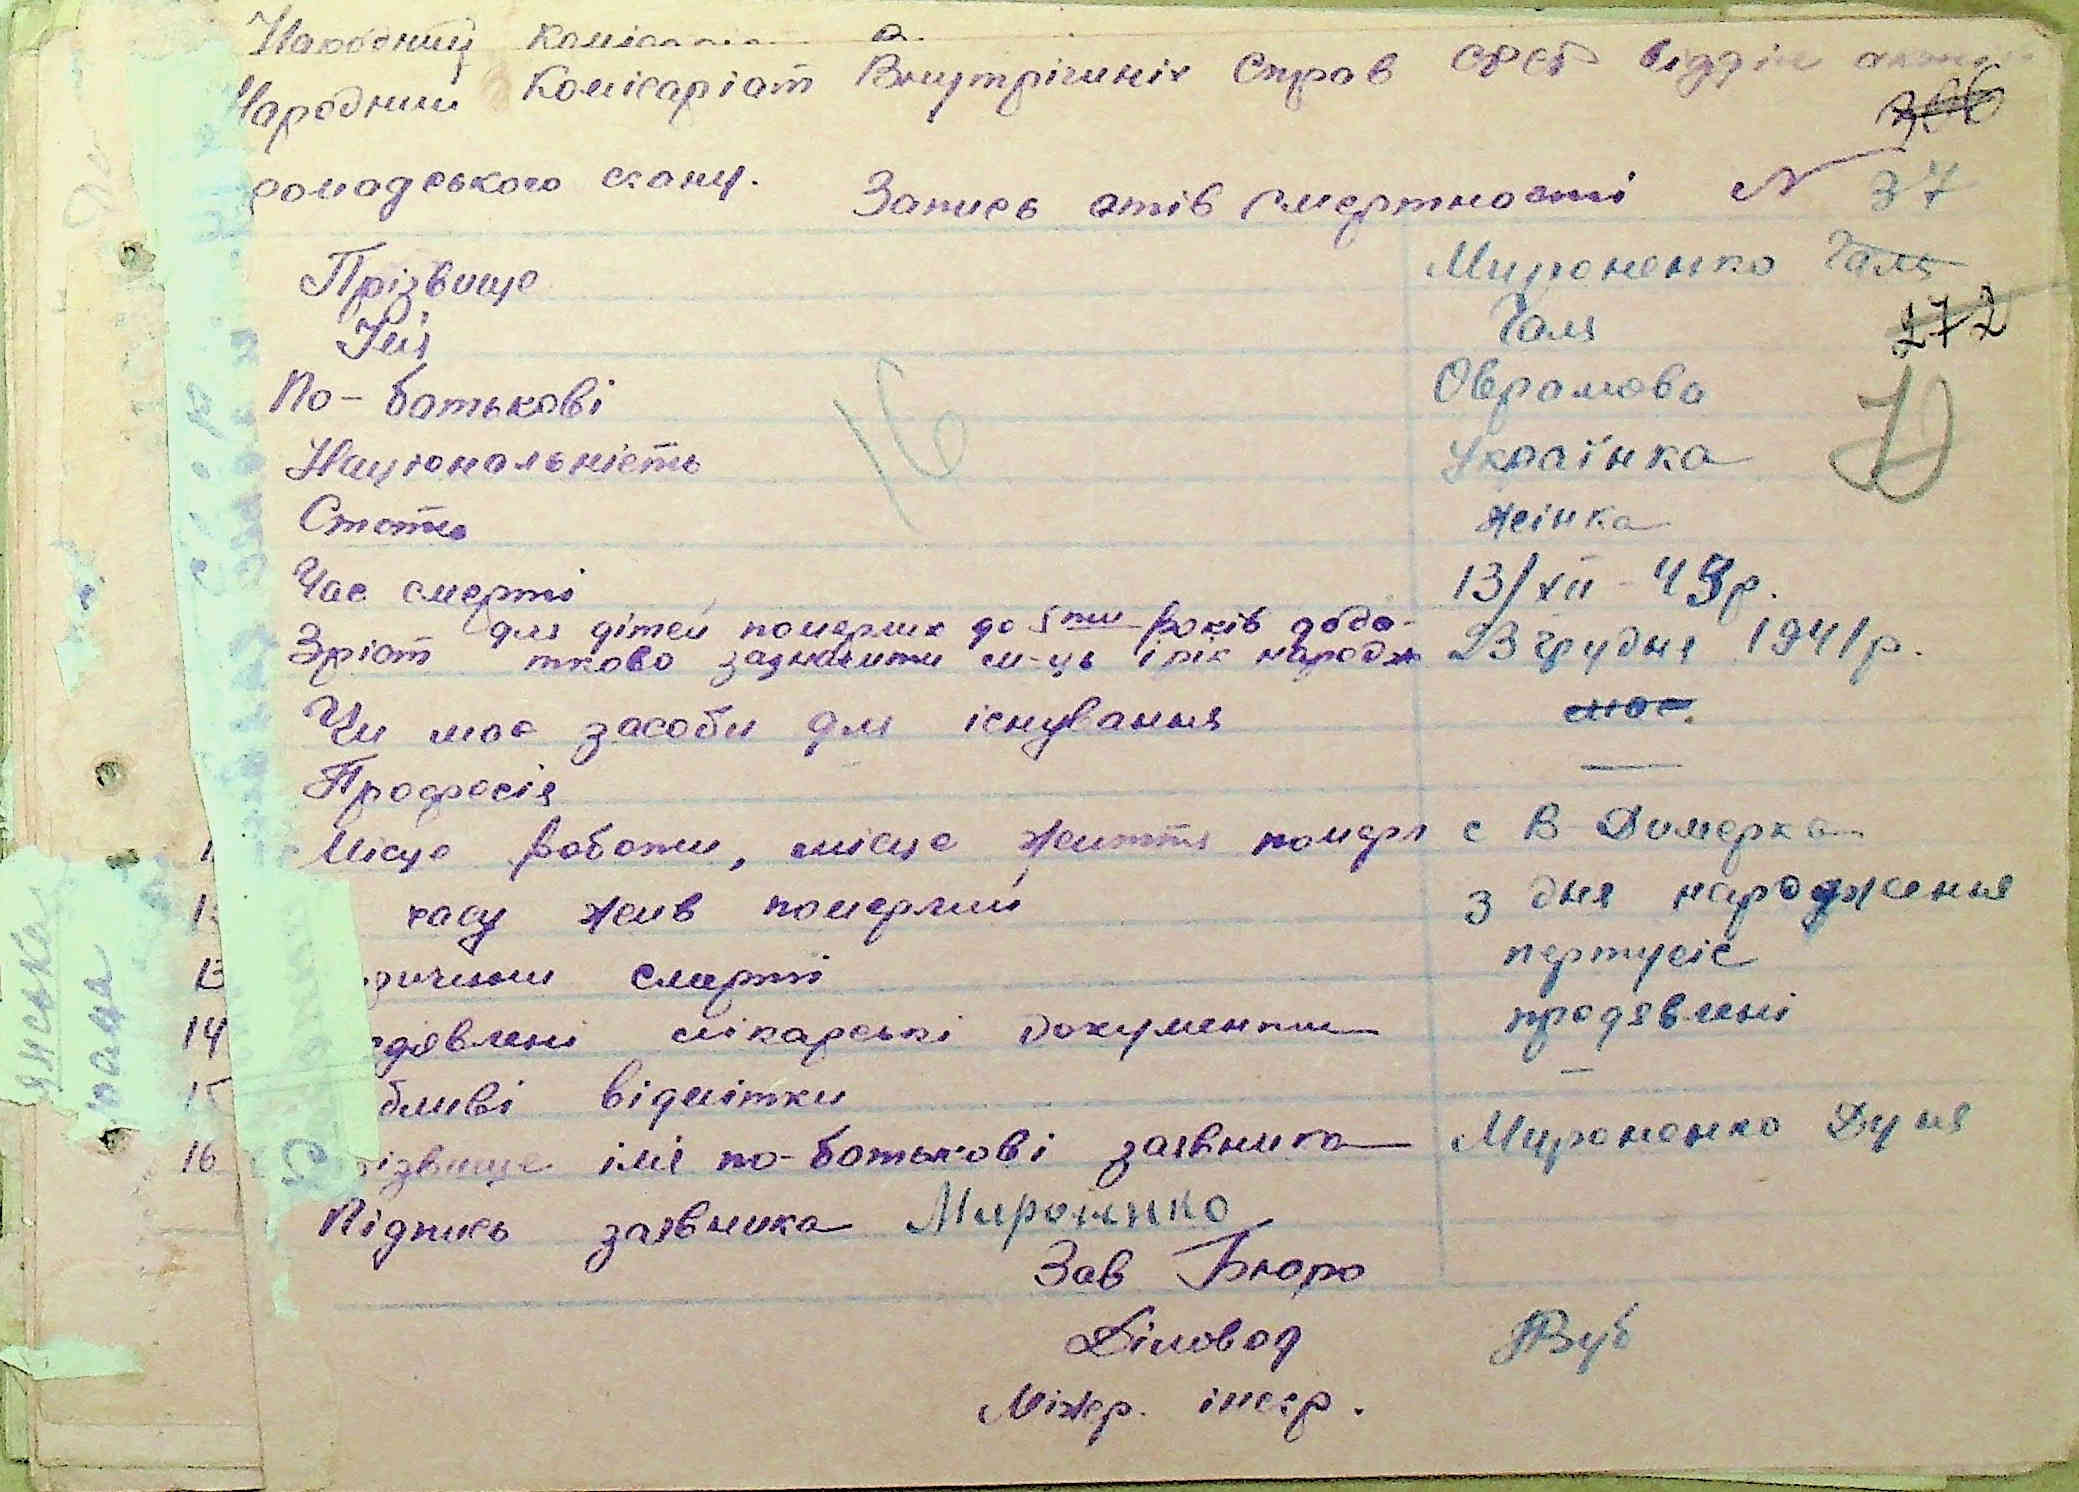 Народний Комісаріат В
Народний Комісаріат Внутрішніх Справ СРСР Відділ актів
ромадського стану. Запись атів смертности N 37
Прізвище Мироненко Галя
Імя Галя
272
По-батькові Оврамова
Національність Українка
Стать жінка
16
Час смерті 13/XII-43р.
для дітей померших до 5ти років дода-
Зріст тково зазначити м-ць і рік народж 23 грудня 1941р.
Чи має засоби для існування має.
Професія —
Місце роботи, місце життя померл с В-Димерка
часу жив померлий З дня народження
13 ричини смерті пертусіс
14 едявлені лікарські документи предявлені
15 бливі відмітки —
16 ізвище імя по-батькові заявника Мироненко Дуня
Підпись заявника Мироненко
Зав Бюро
Діловод
Міжр. інспр.